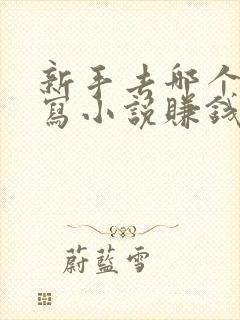 新手去哪个
寫小說賺錢
蔚藍雪